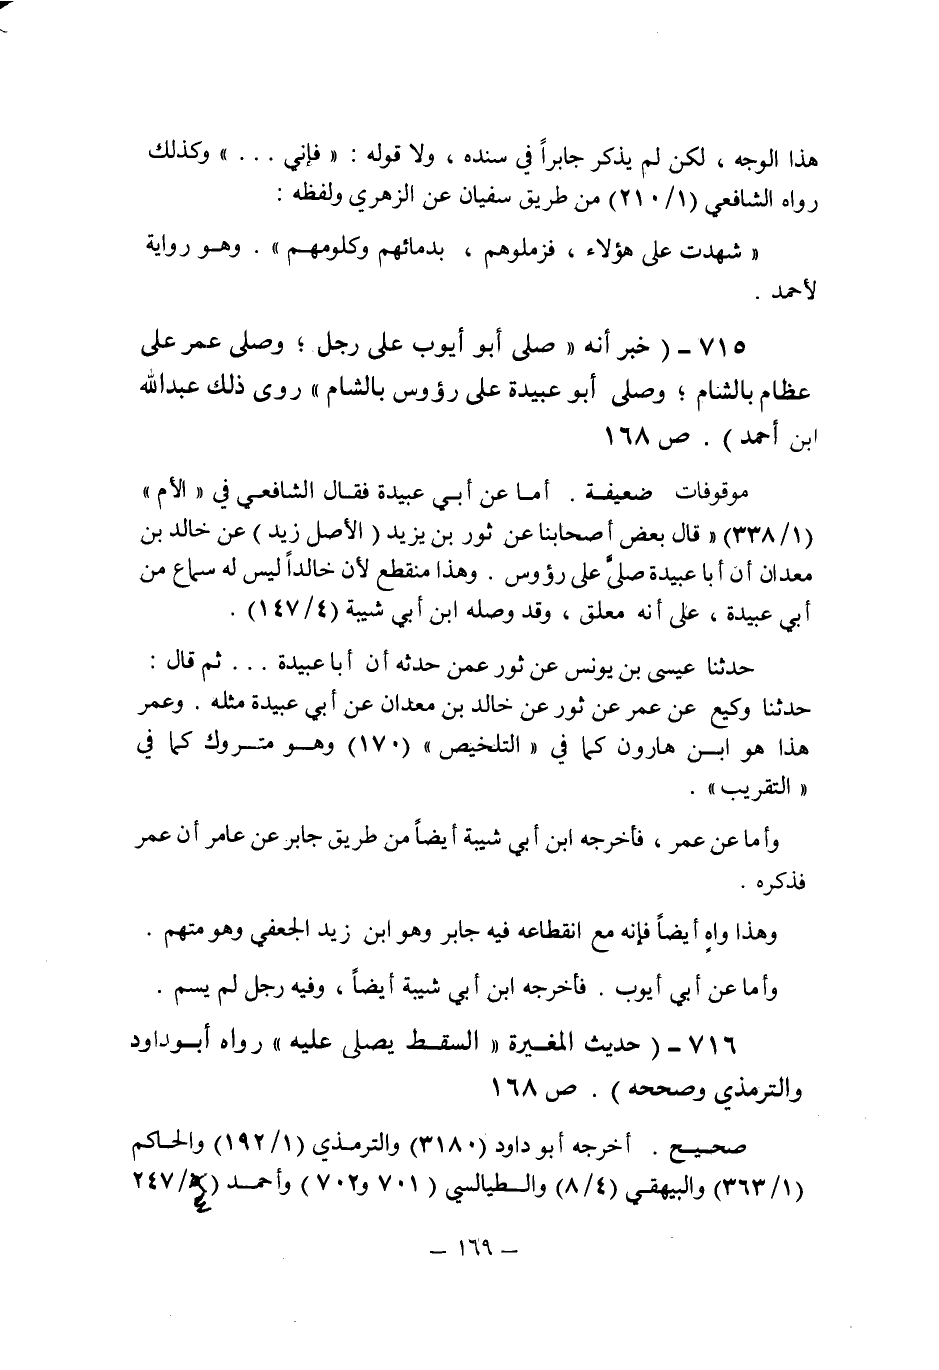 هذا الوجه ، لكن لم يذكر جابراً في سنده ، ولا قوله : « فإني . . . » وكذلك
رواه الشافعي (١/ ٢١٠) من طريق سفيان عن الزهري ولفظه :
« شهدت على هؤلاء ، فزملوهم ، بدمائهم وكلومهم » . وهو رواية
لأحمد .
٧١٥ - ( خبر أنه « صلى أبو أيوب على رجل ؛ وصلى عمر على
عظام بالشام ؛ وصلى أبو عبيدة على رؤوس بالشام » روى ذلك عبدالله
ابن أحمد ) . ص ١٦٨
موقوفات ضعيفة . أما عن أبي عبيدة فقال الشافعي في « الأم »
(١/ ٣٣٨) « قال بعض أصحابنا عن ثور بن يزيد ( الأصل زيد ) عن خالد بن
معدان أن أبا عبيدة صلىَّ على رؤوس . وهذا منقطع لأن خالداً ليس له سماع من
أبي عبيدة ، على أنه معلق ، وقد وصله ابن أبي شيبة (٤/ ١٤٧) .
حدثنا عيسى بن يونس عن ثور عمن حدثه أن أبا عبيدة . . . ثم قال :
حدثنا وكيع عن عمر عن ثور عن خالد بن معدان عن أبي عبيدة مثله . وعمر
هذا هو ابن هارون كما في « التلخيص » (١٧٠) وهو متروك كما في
« التقريب » .
وأما عن عمر ، فأخرجه ابن أبي شيبة أيضاً من طريق جابر عن عامر أن عمر
فذكره .
وهذا واهٍ أيضاً فإنه مع انقطاعه فيه جابر وهو ابن زيد الجعفي وهو متهم .
وأما عن أبي أيوب . فأخرجه ابن أبي شيبة أيضاً ، وفيه رجل لم يسم .
٧١٦ - ( حديث المغيرة « السقط يصلى عليه » رواه أبوداود
والترمذي وصححه ) . ص ١٦٨
صحيح . أخرجه أبو داود (٣١٨٠) والترمذي (١/ ١٩٢) والحاكم
(١/ ٣٦٣) والبيهقي (٤/ ٨) والطيالسي ( ٧٠١ و٧٠٢ ) وأحمد (٤/ ٢٤٧
— ١٦٩ —